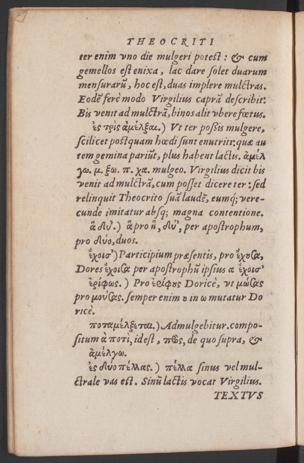 THEOCRITI
ter enim vno die mulgeri potest: & cum
gemellos est enixa, lac dare solet duarum
mensurarū, hoc est, duas implere mulctras.
Eodē ferè modo Virgilius caprā describit:
Bis venit ad mulctrā, binos alit vbere fœtus.
ἐς τρὶς ἀμέλξαι.) Vt ter possis mulgere,
scilicet postquam hœdi sunt enutriti: quæ au
tem gemina pariūt, plus habent lactis. ἀμέλ
γω. μ. ξω. π. χα. mulgeo. Virgilius dicit bis
venit ad mulctrā, cum posset dicere ter: sed
relinquit Theocrito suā laudē, eumq́; vere-
cunde imitatur absq; magna contentione.
ἃ δύ.) ἃ pro ἣ, δύ, per apostrophum,
pro δύο, duos.
ἔχοισ') Participium præsentis, pro ἔχουσα,
Dores ἔχοισα per apostrophū ipsius α ἔχοισ'
ἐρίφως.) Pro ἐρίφους Doricè, vt μώσας
pro μούσας. semper enim υ in ω mutatur Do
ricè.
ποταμέλξεται.) Admulgebitur. compo-
situm à ποτὶ, id est, πρὸς, de quo supra, &
ἀμέλγω.
ἐς δύο πέλλας.) πέλλα sinus vel mul-
ctrale vas est. Sinū lactis vocat Virgilius.
TEXTVS